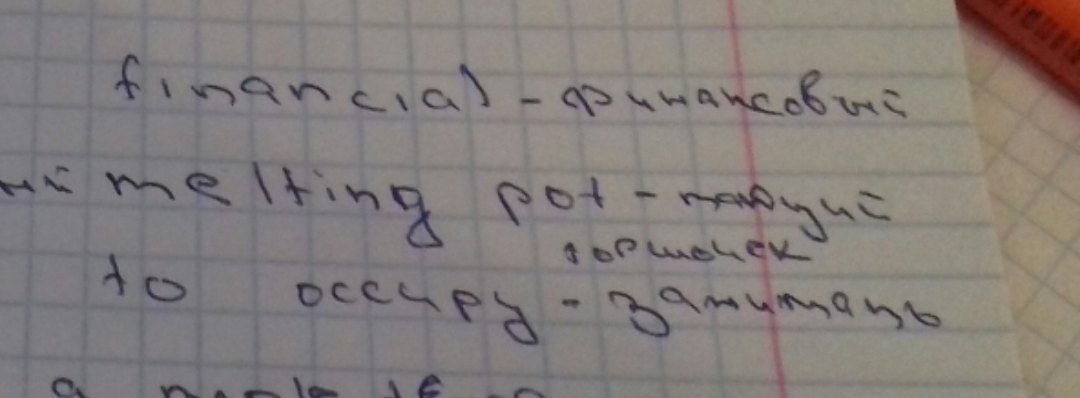 financial - финансовый
ий melting pot -
горшочек
to occupy - занимать
a